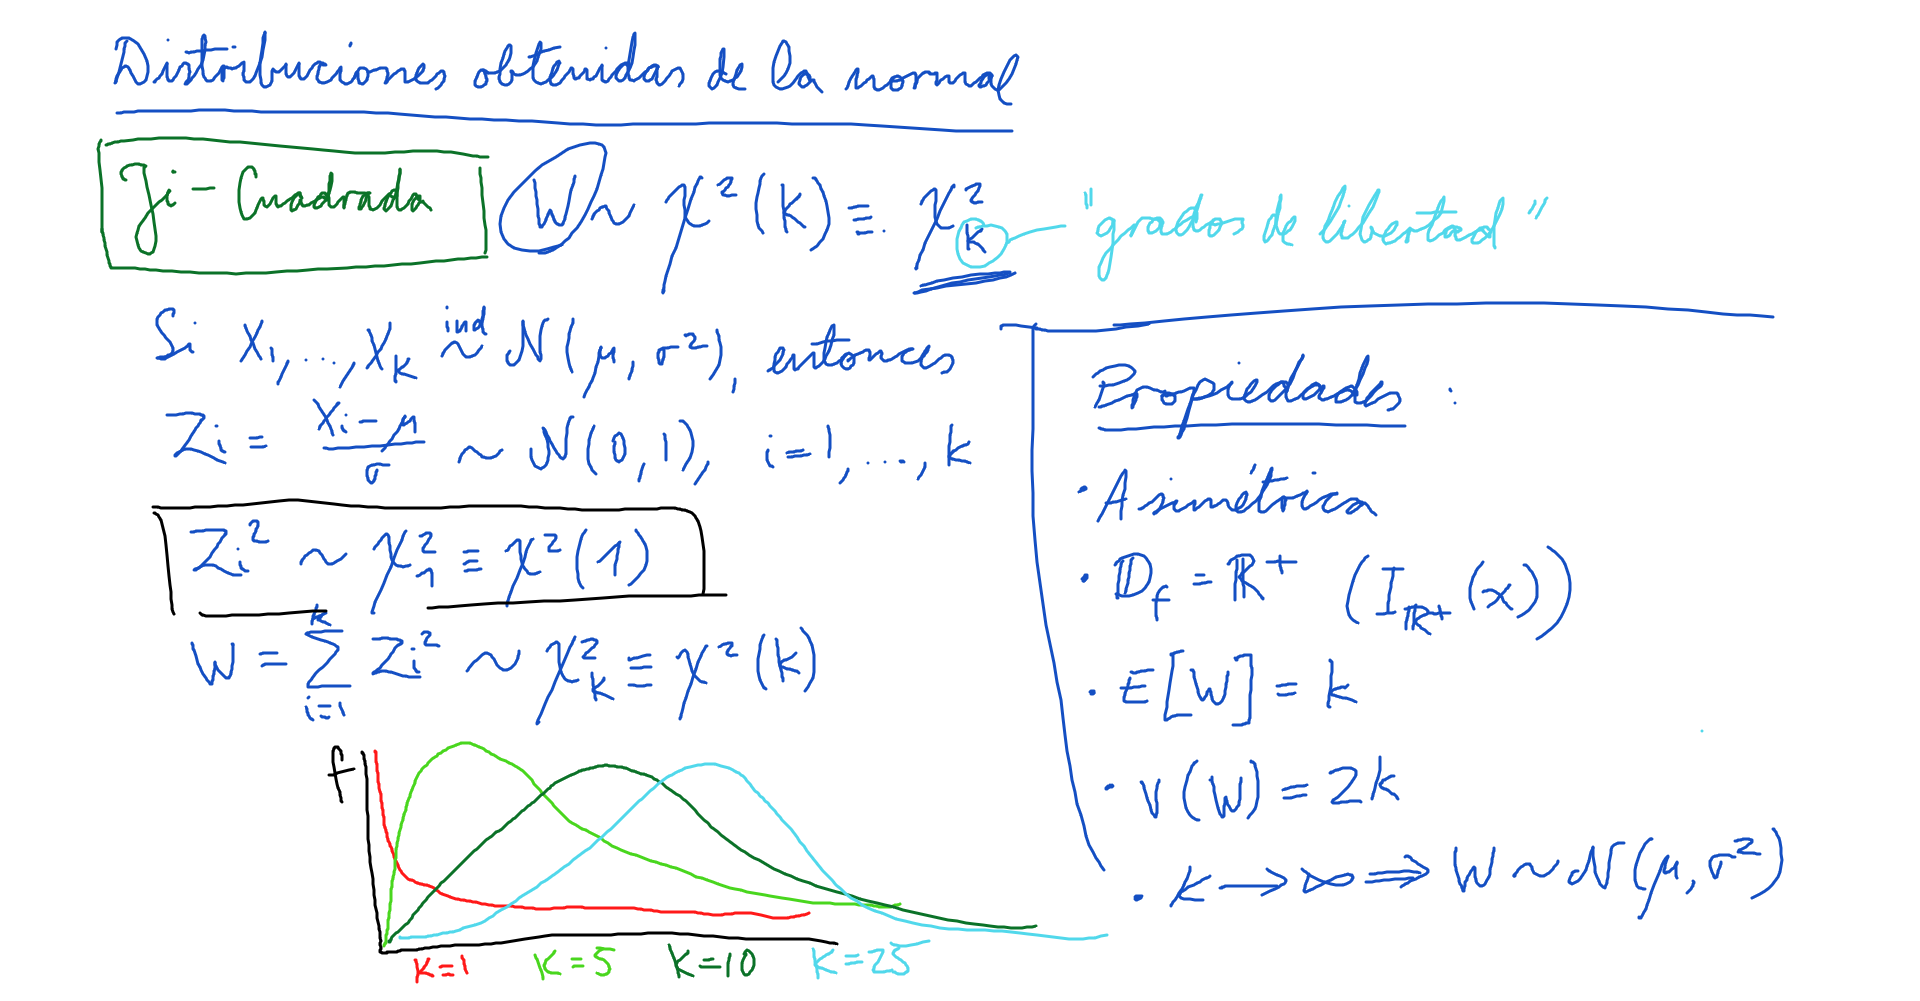 Distribuciones obtenidas de la normal
Ji-Cuadrada W ~ χ²(k) ≡ χ²_k "grados de libertad"
Si X₁, ..., X_k ind ~ N(μ, σ²), entonces
Z_i = (X_i − μ)/σ ~ N(0, 1), i = 1, ..., k
Z_i² ~ χ²_1 ≡ χ²(1)
W = Σ_{i=1}^{k} Z_i² ~ χ²_k ≡ χ²(k)
f
K=1 K=5 K=10 K=25
Propiedades :
• Asimétrica
• D_f = ℝ⁺ (I_{ℝ⁺}(x))
• E[W] = k
• V(W) = 2k
• K → ∞ ⟹ W ~ N(μ, σ²)